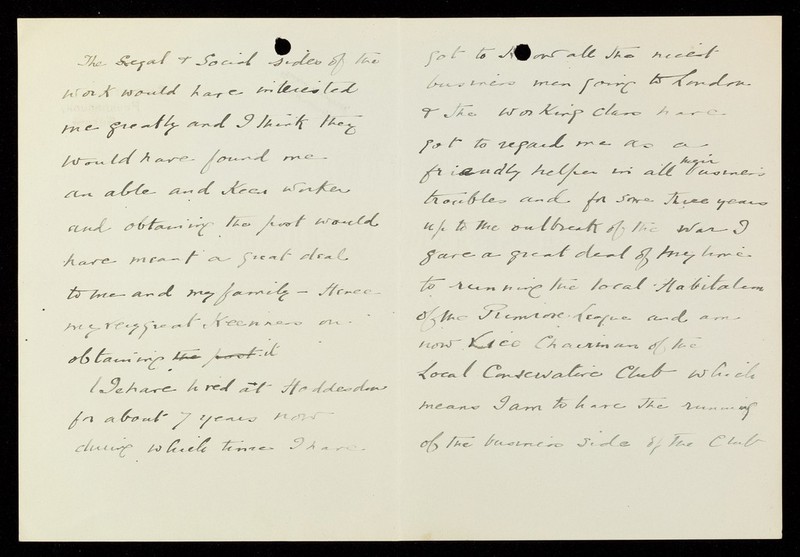 The Legal & Social sides of the
work would have interested
me greatly and I think they
would have found me
an able and keen worker
and obtaining the post would
have meant a great deal
to me and my family – Hence
my very great keenness on
obtaining the post it
We have lived at Hoddesdon
for about 7 years now
during which time I have
got to know all the nicest
business men going to London
& the working class have
got to regard me as a
friendly helper in all their business
troubles and for some three years
up to the outbreak of the war I
gave a great deal of my time
to running the local Habitation
of the Primrose League and am
now Vice Chairman of the
Local Conservative Club which
means I am to have the running
of the business side of the Club